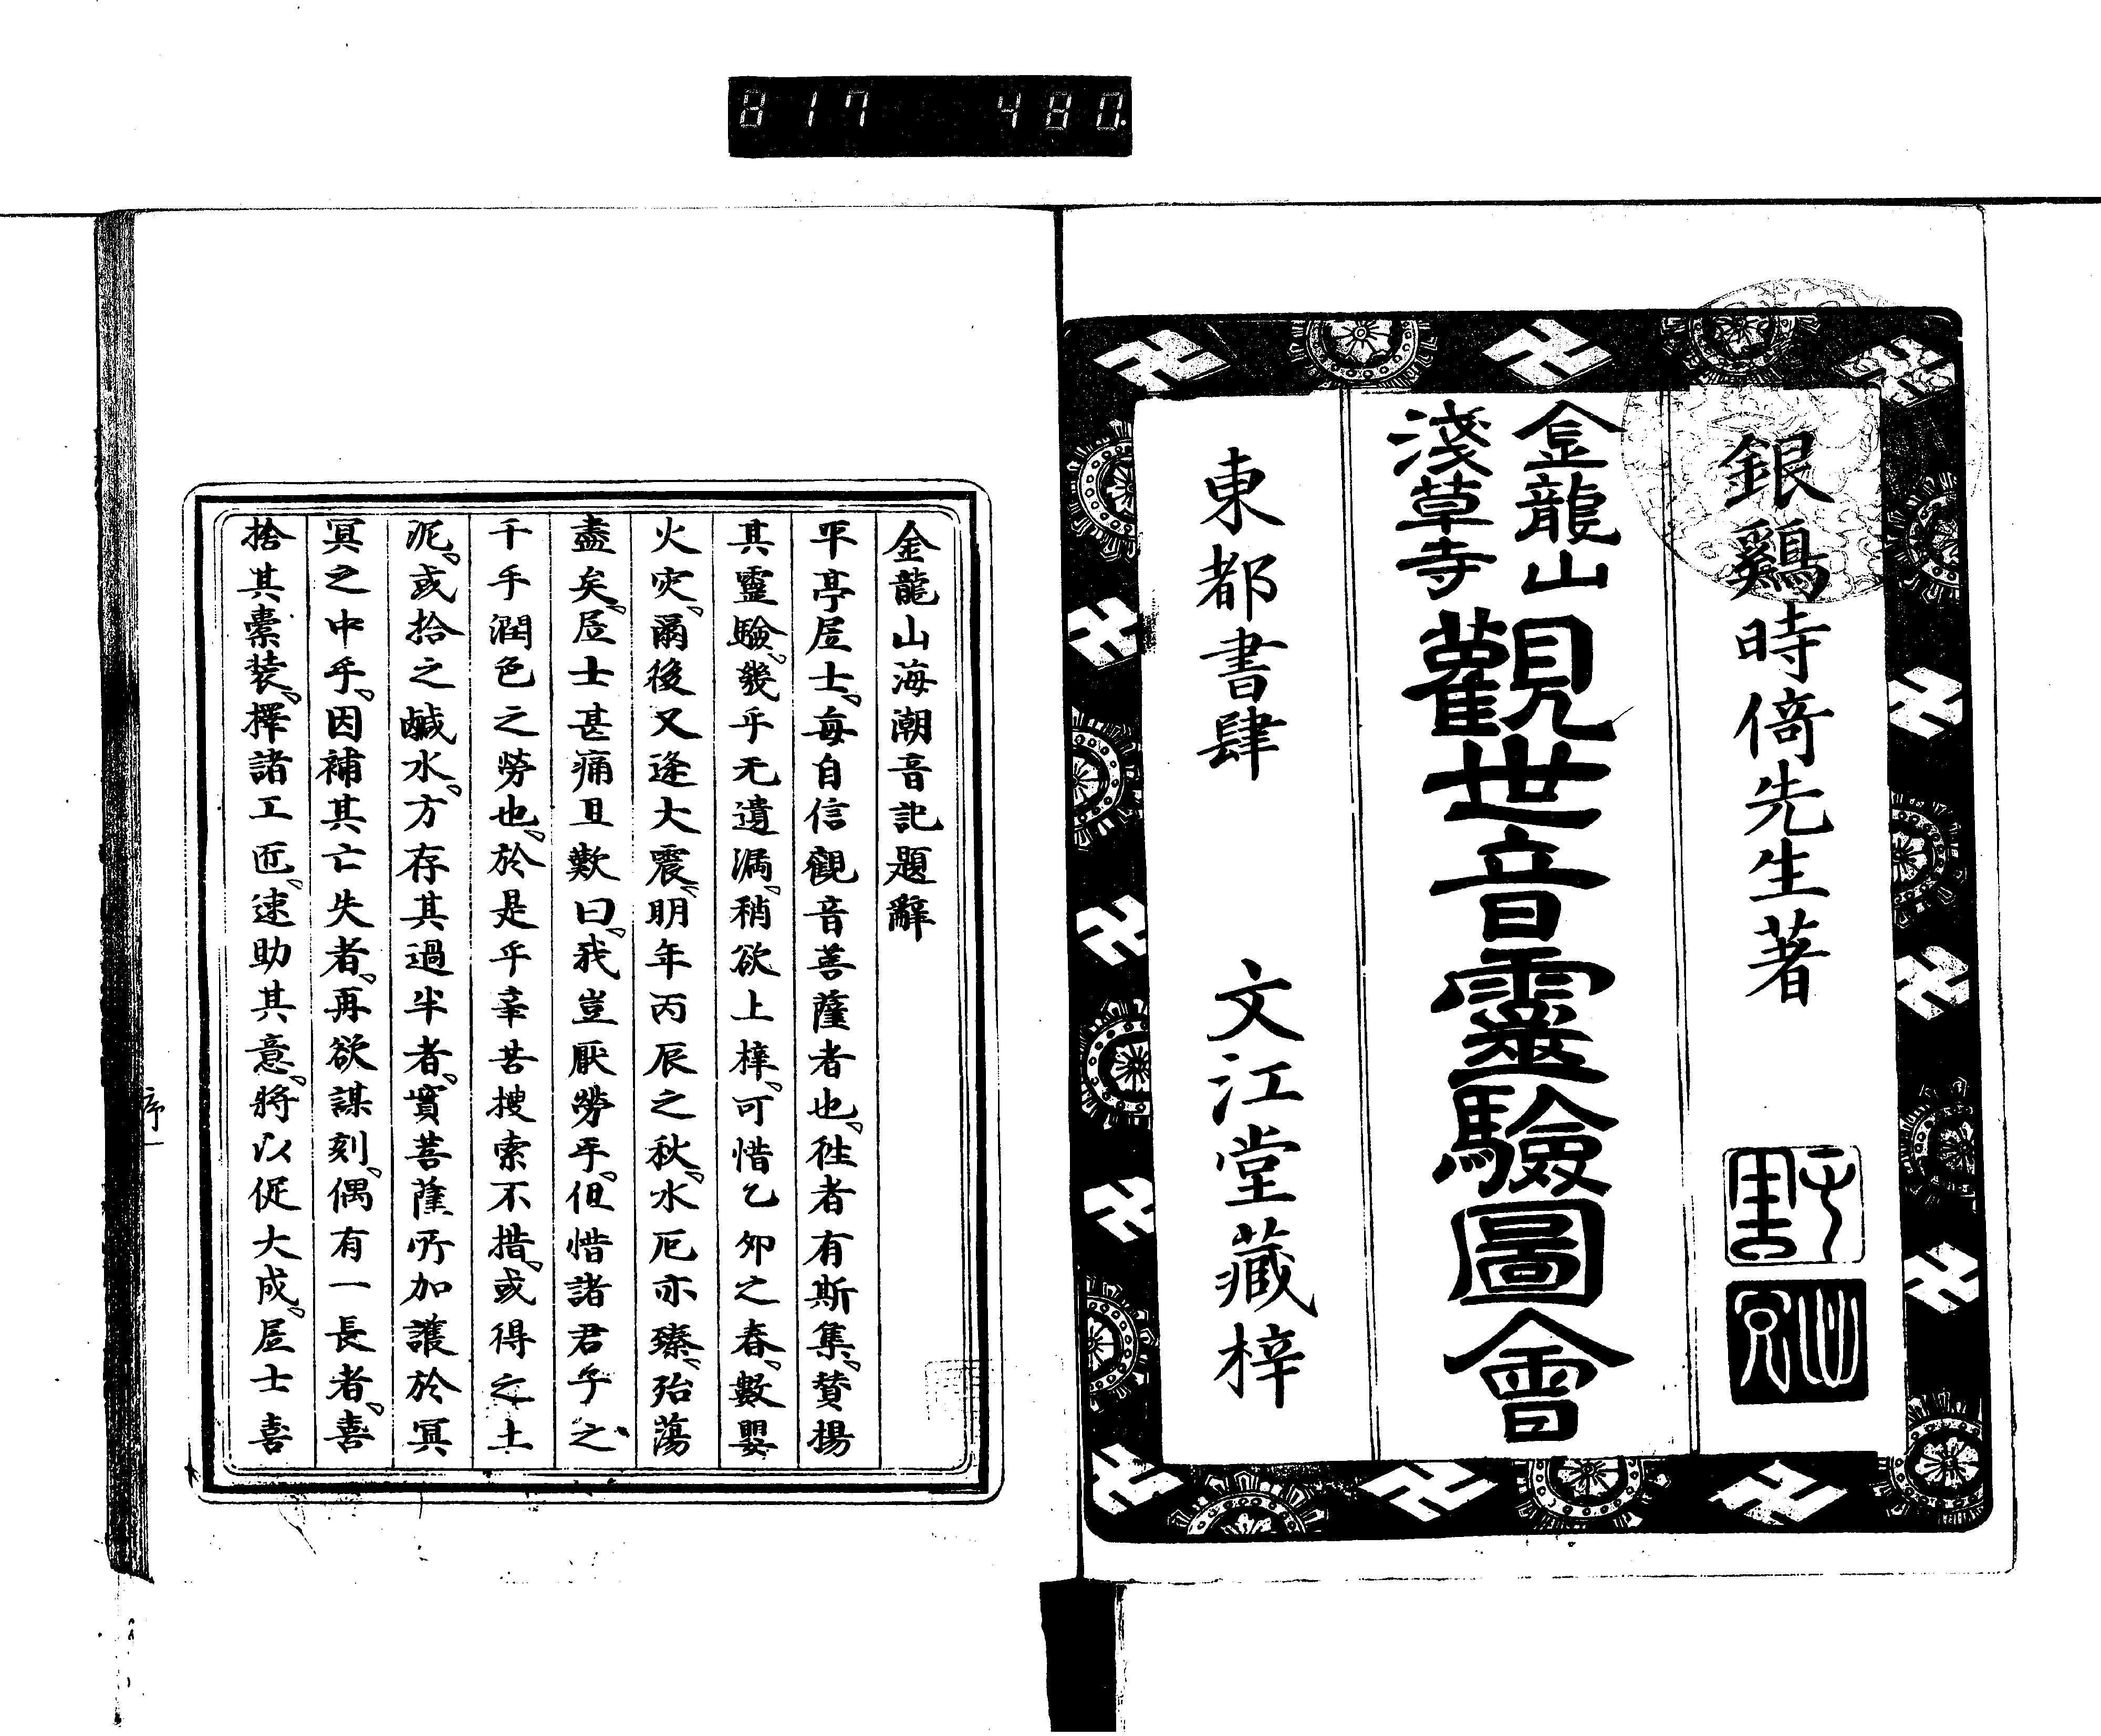 817 480.
銀鷄時倚先生著
金龍山
淺草寺
觀世音靈驗圖會
東都書肆 文江堂藏梓
金龍山海潮音記題辭
平亭居士。每自信觀音菩薩者也。往者有斯集。贊揚
其靈驗。幾乎无遺漏。稍欲上梓。可惜乙卯之春。數嬰
火灾。爾後又逢大震。明年丙辰之秋。水厄亦臻。殆蕩
盡矣。居士甚痛且歎曰。我豈厭勞乎。但惜諸君子之
千乎潤色之勞也。於是乎辛苦搜索不措。或得之土
泥。或拾之鹹水。方存其過半者。實菩薩所加護於冥
冥之中乎。因補其亡失者。再欲謀刻。偶有一長者。喜
捨其橐装。擇諸工匠。速助其意。將以促大成。居士喜
序一